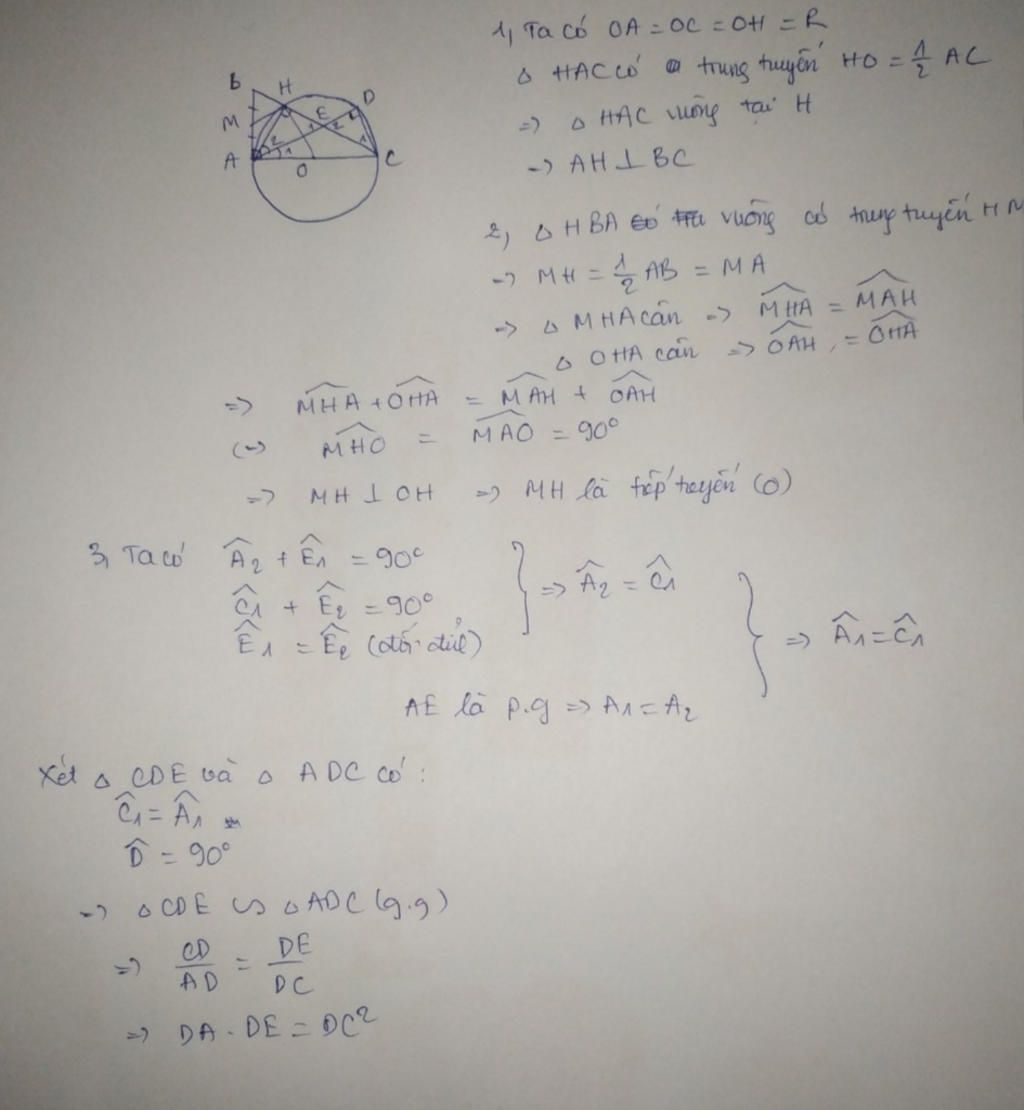 1, Ta có OA = OC = OH = R
Δ HAC có trung tuyến HO = 1/2 AC
=> Δ HAC vuông tại H
-> AH ⊥ BC
B H D
M E
A O C
2 1 1 2 1
2, Δ HBA vuông có trung tuyến HM
-> MH = 1/2 AB = MA
-> Δ MHA cân -> \widehat{MHA} = \widehat{MAH}
Δ OHA cân => \widehat{OAH} = \widehat{OHA}
=> \widehat{MHA} + \widehat{OHA} = \widehat{MAH} + \widehat{OAH}
(-> \widehat{MHO} = \widehat{MAO} = 90°
=> MH ⊥ OH => MH là tiếp tuyến (O)
3, Ta có Â₂ + Ê₁ = 90°
Ĉ₁ + Ê₂ = 90°
Ê₁ = Ê₂ (đối đỉnh)
} => Â₂ = Ĉ₁
AE là p.g => A₁ = A₂
} => Â₁ = Ĉ₁
Xét Δ CDE và Δ ADC có:
Ĉ₁ = Â₁
D̂ = 90°
-> Δ CDE ∽ Δ ADC (g.g)
=> CD/AD = DE/DC
=> DA . DE = DC²